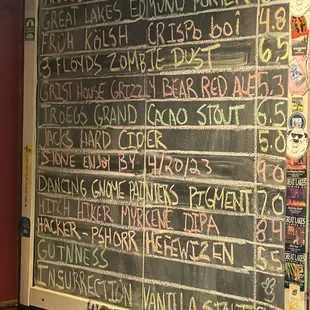 GREAT LAKES EDMUND PORTER
FRÜH KÖLSH CRISPO boi 4.8
3 FLOYDS ZOMBIE DUST 6.5
GRIST HOUSE GRIZZLY BEAR RED ALE 5.3
TROEGS GRAND CACAO STOUT 6.5
JACKS HARD CIDER 5.0
STONE ENJOY BY 4/20/23 9.0
DANCING GNOME PAINTERS PIGMENT 7.0
HITCH HIKER MYRCENE DIPA 8.4
HACKER-PSHORR HEFEWIZEN 5.5
GUINNESS
INSURRECTION VANILLA